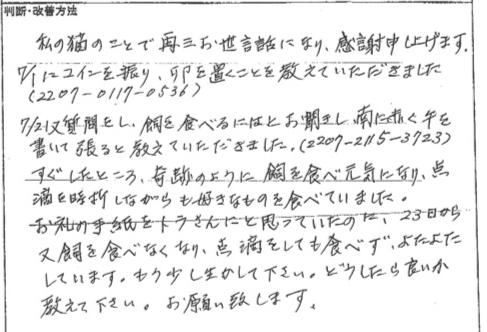 判断・改善方法
私の猫のことで再三お世話になり、感謝申し上げます。
7/1にコインを振り、卯を置くことを教えていただきました
(2207-0117-0536)
7/21又質問をし、餌を食べるにはとお聞きし、南に赤く午を
書いて張ると教えていただきました。(2207-2115-3723)
すぐしたところ、奇跡のように餌を食べ元気になり、点
滴を時折しながらも好きなものを食べていました。
お礼の手紙をトラさんにと思っていたのに、23日から
又餌を食べなくなり、点滴をしても食べず、よたよた
しています。もう少し生かして下さい。どうしたら良いか
教えて下さい。お願い致します。